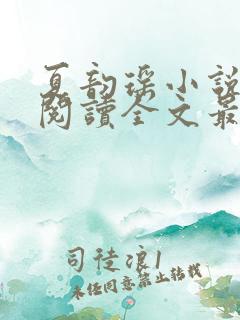 夏韵瑶小说
阅读全文最
司徒浪1
未经同意禁止转载